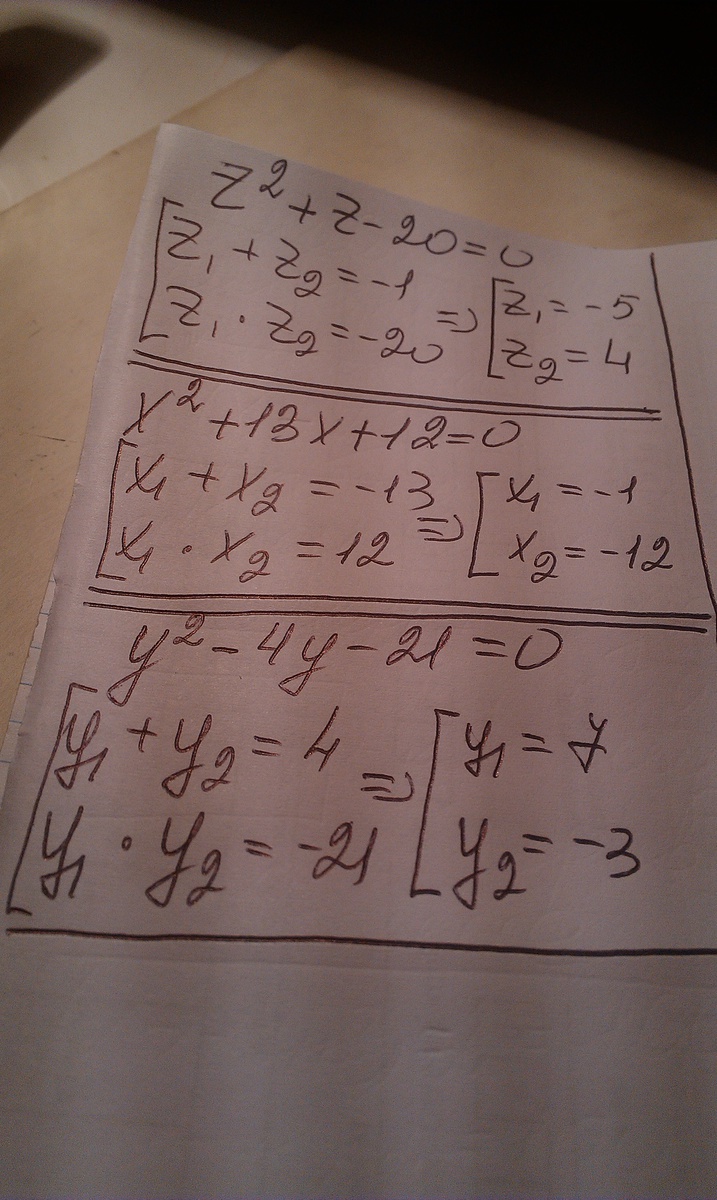 z² + z - 20 = 0
[z₁ + z₂ = -1
[z₁ · z₂ = -20 => [z₁ = -5
[z₂ = 4
x² + 13x + 12 = 0
[x₁ + x₂ = -13
[x₁ · x₂ = 12 => [x₁ = -1
[x₂ = -12
y² - 4y - 21 = 0
[y₁ + y₂ = 4
[y₁ · y₂ = -21 => [y₁ = 7
[y₂ = -3